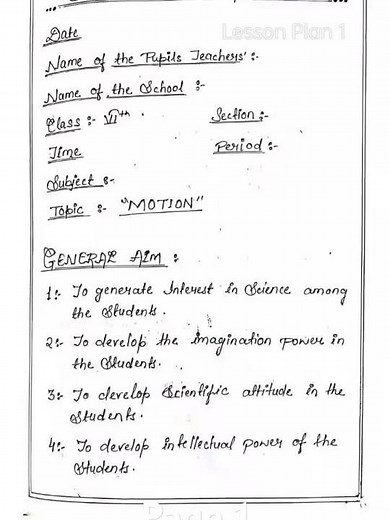 Lesson Plan 1
Date
Name of the Pupils Teachers' :-
Name of the School :-
Class :- VIth . Section :-
Time Period :-
Subject :-
Topic :- "MOTION"
GENERAL AIM :
1:- To generate Interest in Science among
the Students.
2:- To develop the imagination power in
the Students.
3:- To develop Scientific attitude in the
Students.
4:- To develop intellectual power of the
Students.
Page 1